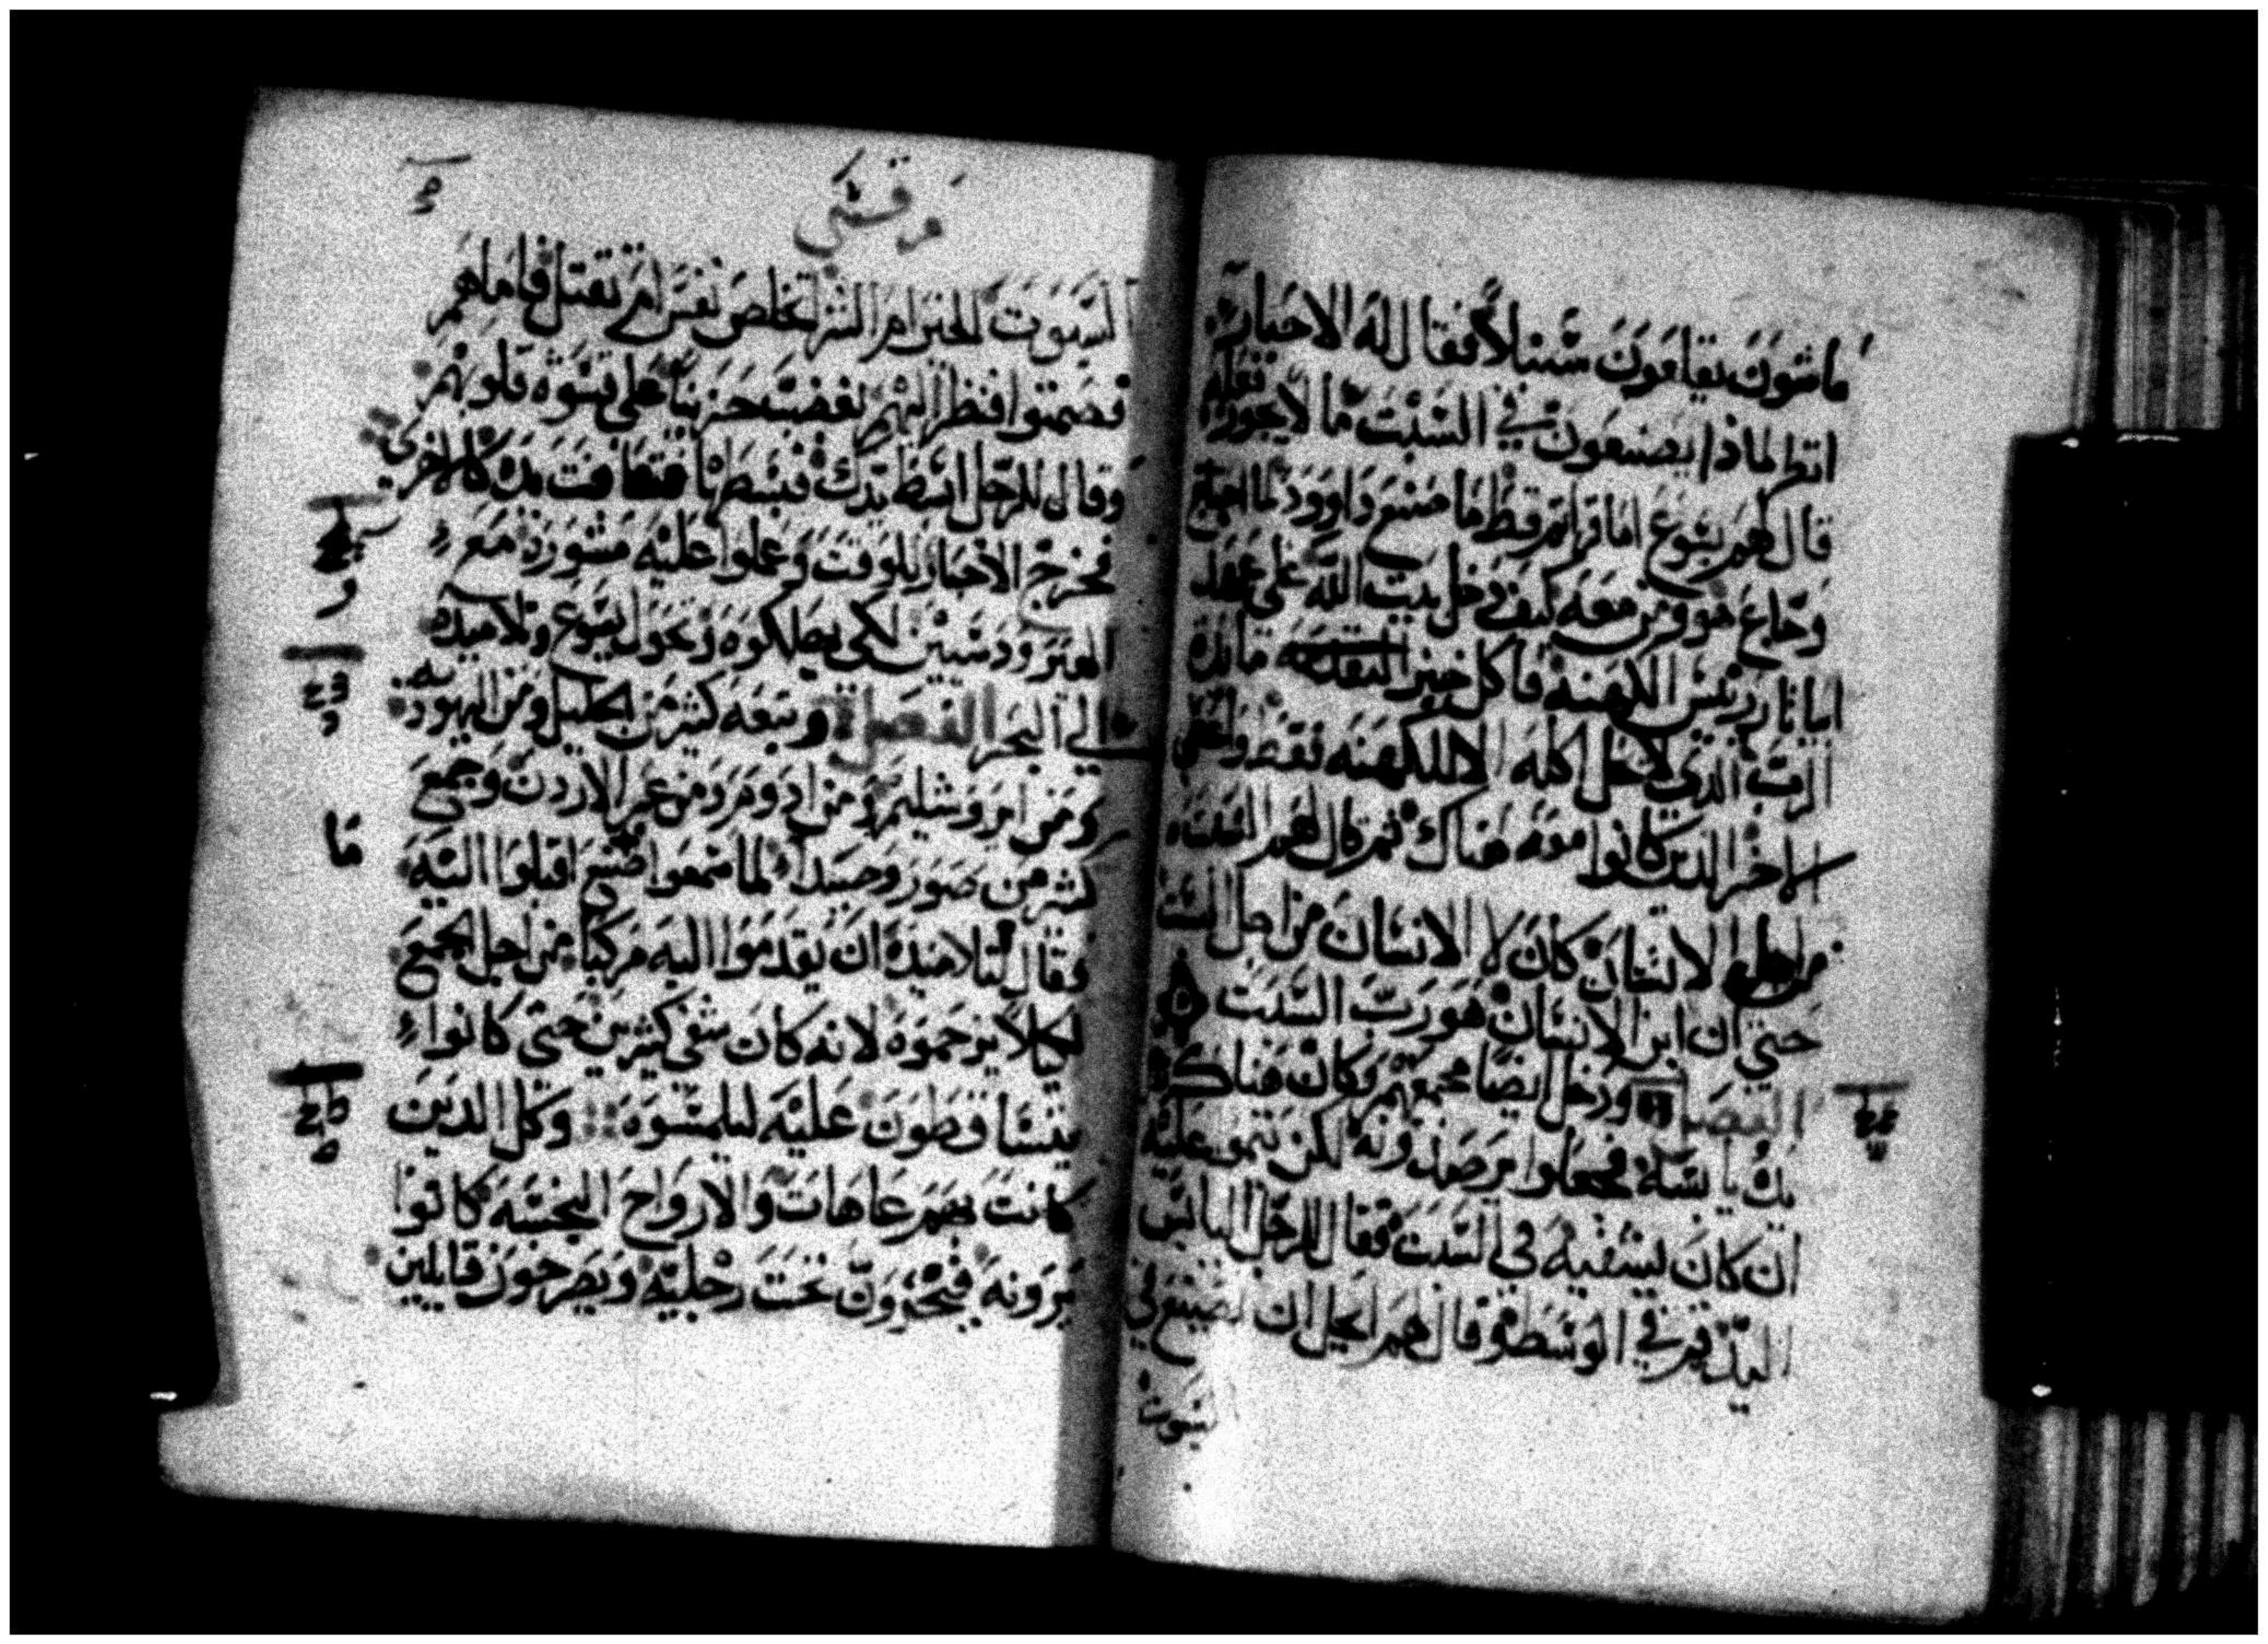 ماشون يقلعون سنبلا فقال له الاحبار
انظر لماذا يصنعون في السبت ما لا يجوز فعله
قال لهم يسوع اما قراتم قط ما صنع داوود لما احتاج
وجاع هو ومن معه كيف دخل بيت الله على عهد
ابياثار رييس الكهنه فاكل خبز التقدمه مايدة
الرب الذي لا يحل اكله الا للكهنه فقط واعطى
لاخر الذين كانوا معه هناك ثم قال لهم السبت
من اجل الانسان كان لا الانسان من اجل السبت
حتى ان ابن الانسان هو رب السبت
الفصل ودخل ايضا مجمعهم وكان هناك
يد يابسة فجعلوا يرصدونه لكن ينموا عليه
ان كان يشفيه في السبت فقال للرجل اليابس
اليد قم في الوسط وقال لهم ايحل ان يصنع في
السبوت
مرقس
السبوت الخير ام الشر اتخلص نفس ام تقتل فاما هم
فصمتوا فنظر اليهم بغضبه حزينا على قسوة قلوبهم
وقال للرجل ابسط يدك فبسطها فتعافت يده كالاخرى
فخرج الاحبار للوقت وعملوا عليه مشورة مع
الهيرودسيين لكي يهلكوه وتحول يسوع وتلاميذه
الى البحر الفصل وتبعه كثير من الجليل ومن اليهوديه
ومن اورشليم ومن ادوم ومن عبر الاردن وجمع
كثير من صور وصيدا لما سمعوا ما صنع اقبلوا اليه
فقال لتلاميذه ان يقدموا اليه مركبا من اجل الجمع
لكيلا يزحموه لانه كان شفى كثيرين حتى كانوا
يتساقطون عليه ليلمسوه وكل الذين
كانت بهم عاهات والارواح النجسه كانوا
يرونه فيخرون تحت رجليه ويصرخون قايلين